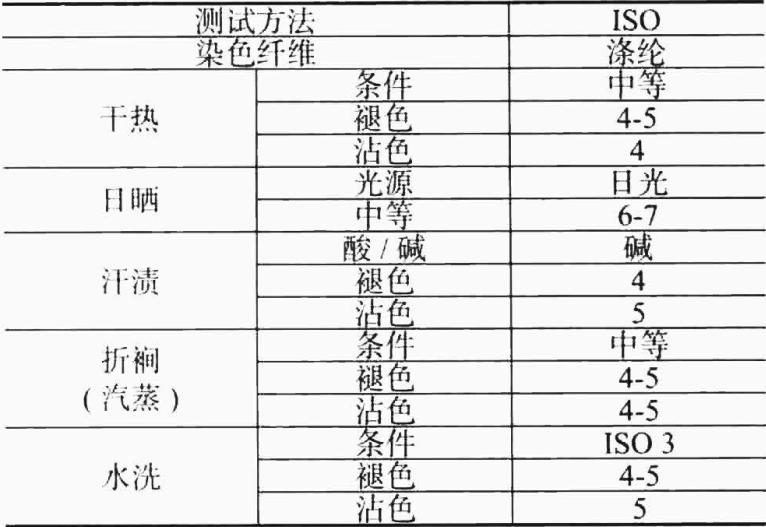 测试方法 ISO
染色纤维 涤纶
干热 条件 中等
褪色 4-5
沾色 4
日晒 光源 日光
中等 6-7
汗渍 酸 / 碱 碱
褪色 4
沾色 5
折裥 条件 中等
(汽蒸) 褪色 4-5
沾色 4-5
水洗 条件 ISO 3
褪色 4-5
沾色 5